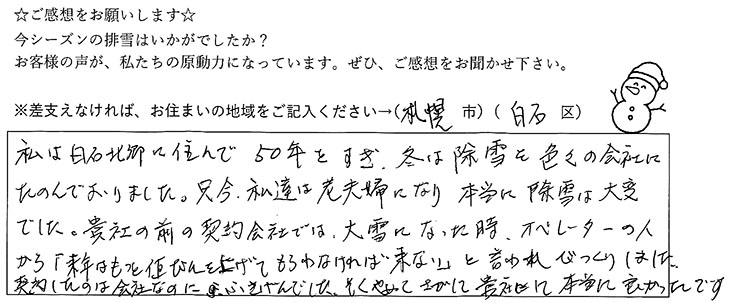 ☆ご感想をお願いします☆
今シーズンの排雪はいかがでしたか？
お客様の声が、私たちの原動力になっています。ぜひ、ご感想をお聞かせ下さい。
※差支えなければ、お住まいの地域をご記入ください→（札幌 市）（ 白石 区）
私は白石北郷に住んで 50年をすぎ、冬は除雪を色々の会社に
たのんでおりました。只今、私達は老夫婦になり 本当に除雪は大変
でした。貴社の前の契約会社では、大雪になった時、オペレーターの人
から「来年はもっと値だんを上げてもらわなければ来ない」と言われ びっくりしました。
契約したのは会社なのに さがして 貴社に 本当に良かったです